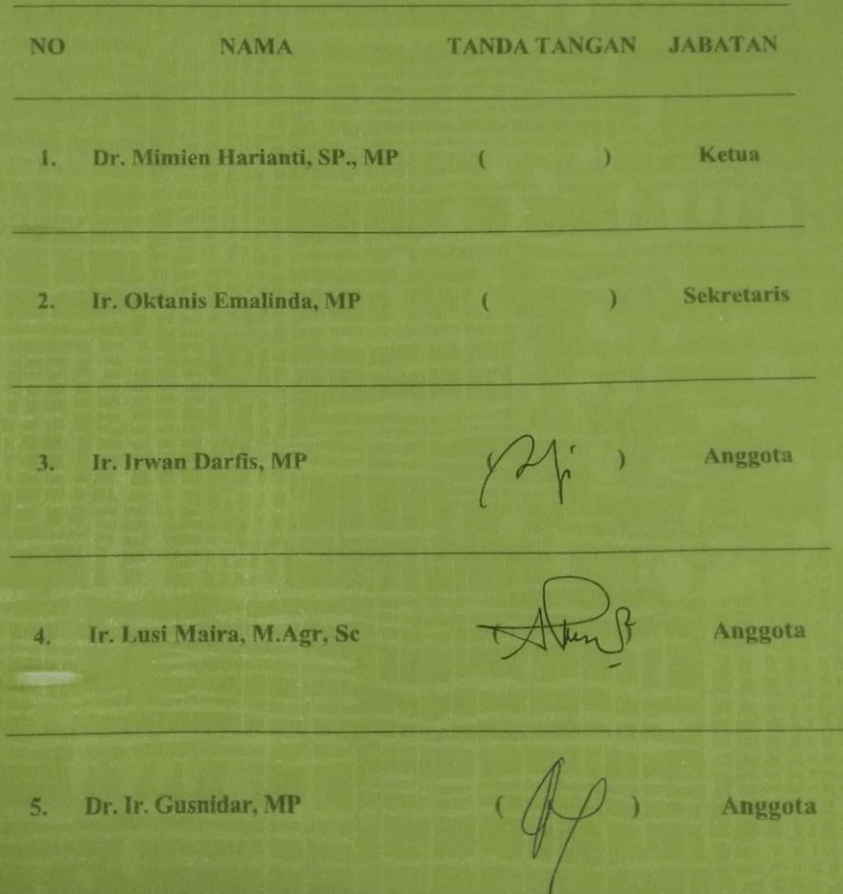 NO NAMA TANDA TANGAN JABATAN
1. Dr. Mimien Harianti, SP., MP ( ) Ketua
2. Ir. Oktanis Emalinda, MP ( ) Sekretaris
3. Ir. Irwan Darfis, MP ( ) Anggota
4. Ir. Lusi Maira, M.Agr, Sc ( ) Anggota
5. Dr. Ir. Gusnidar, MP ( ) Anggota